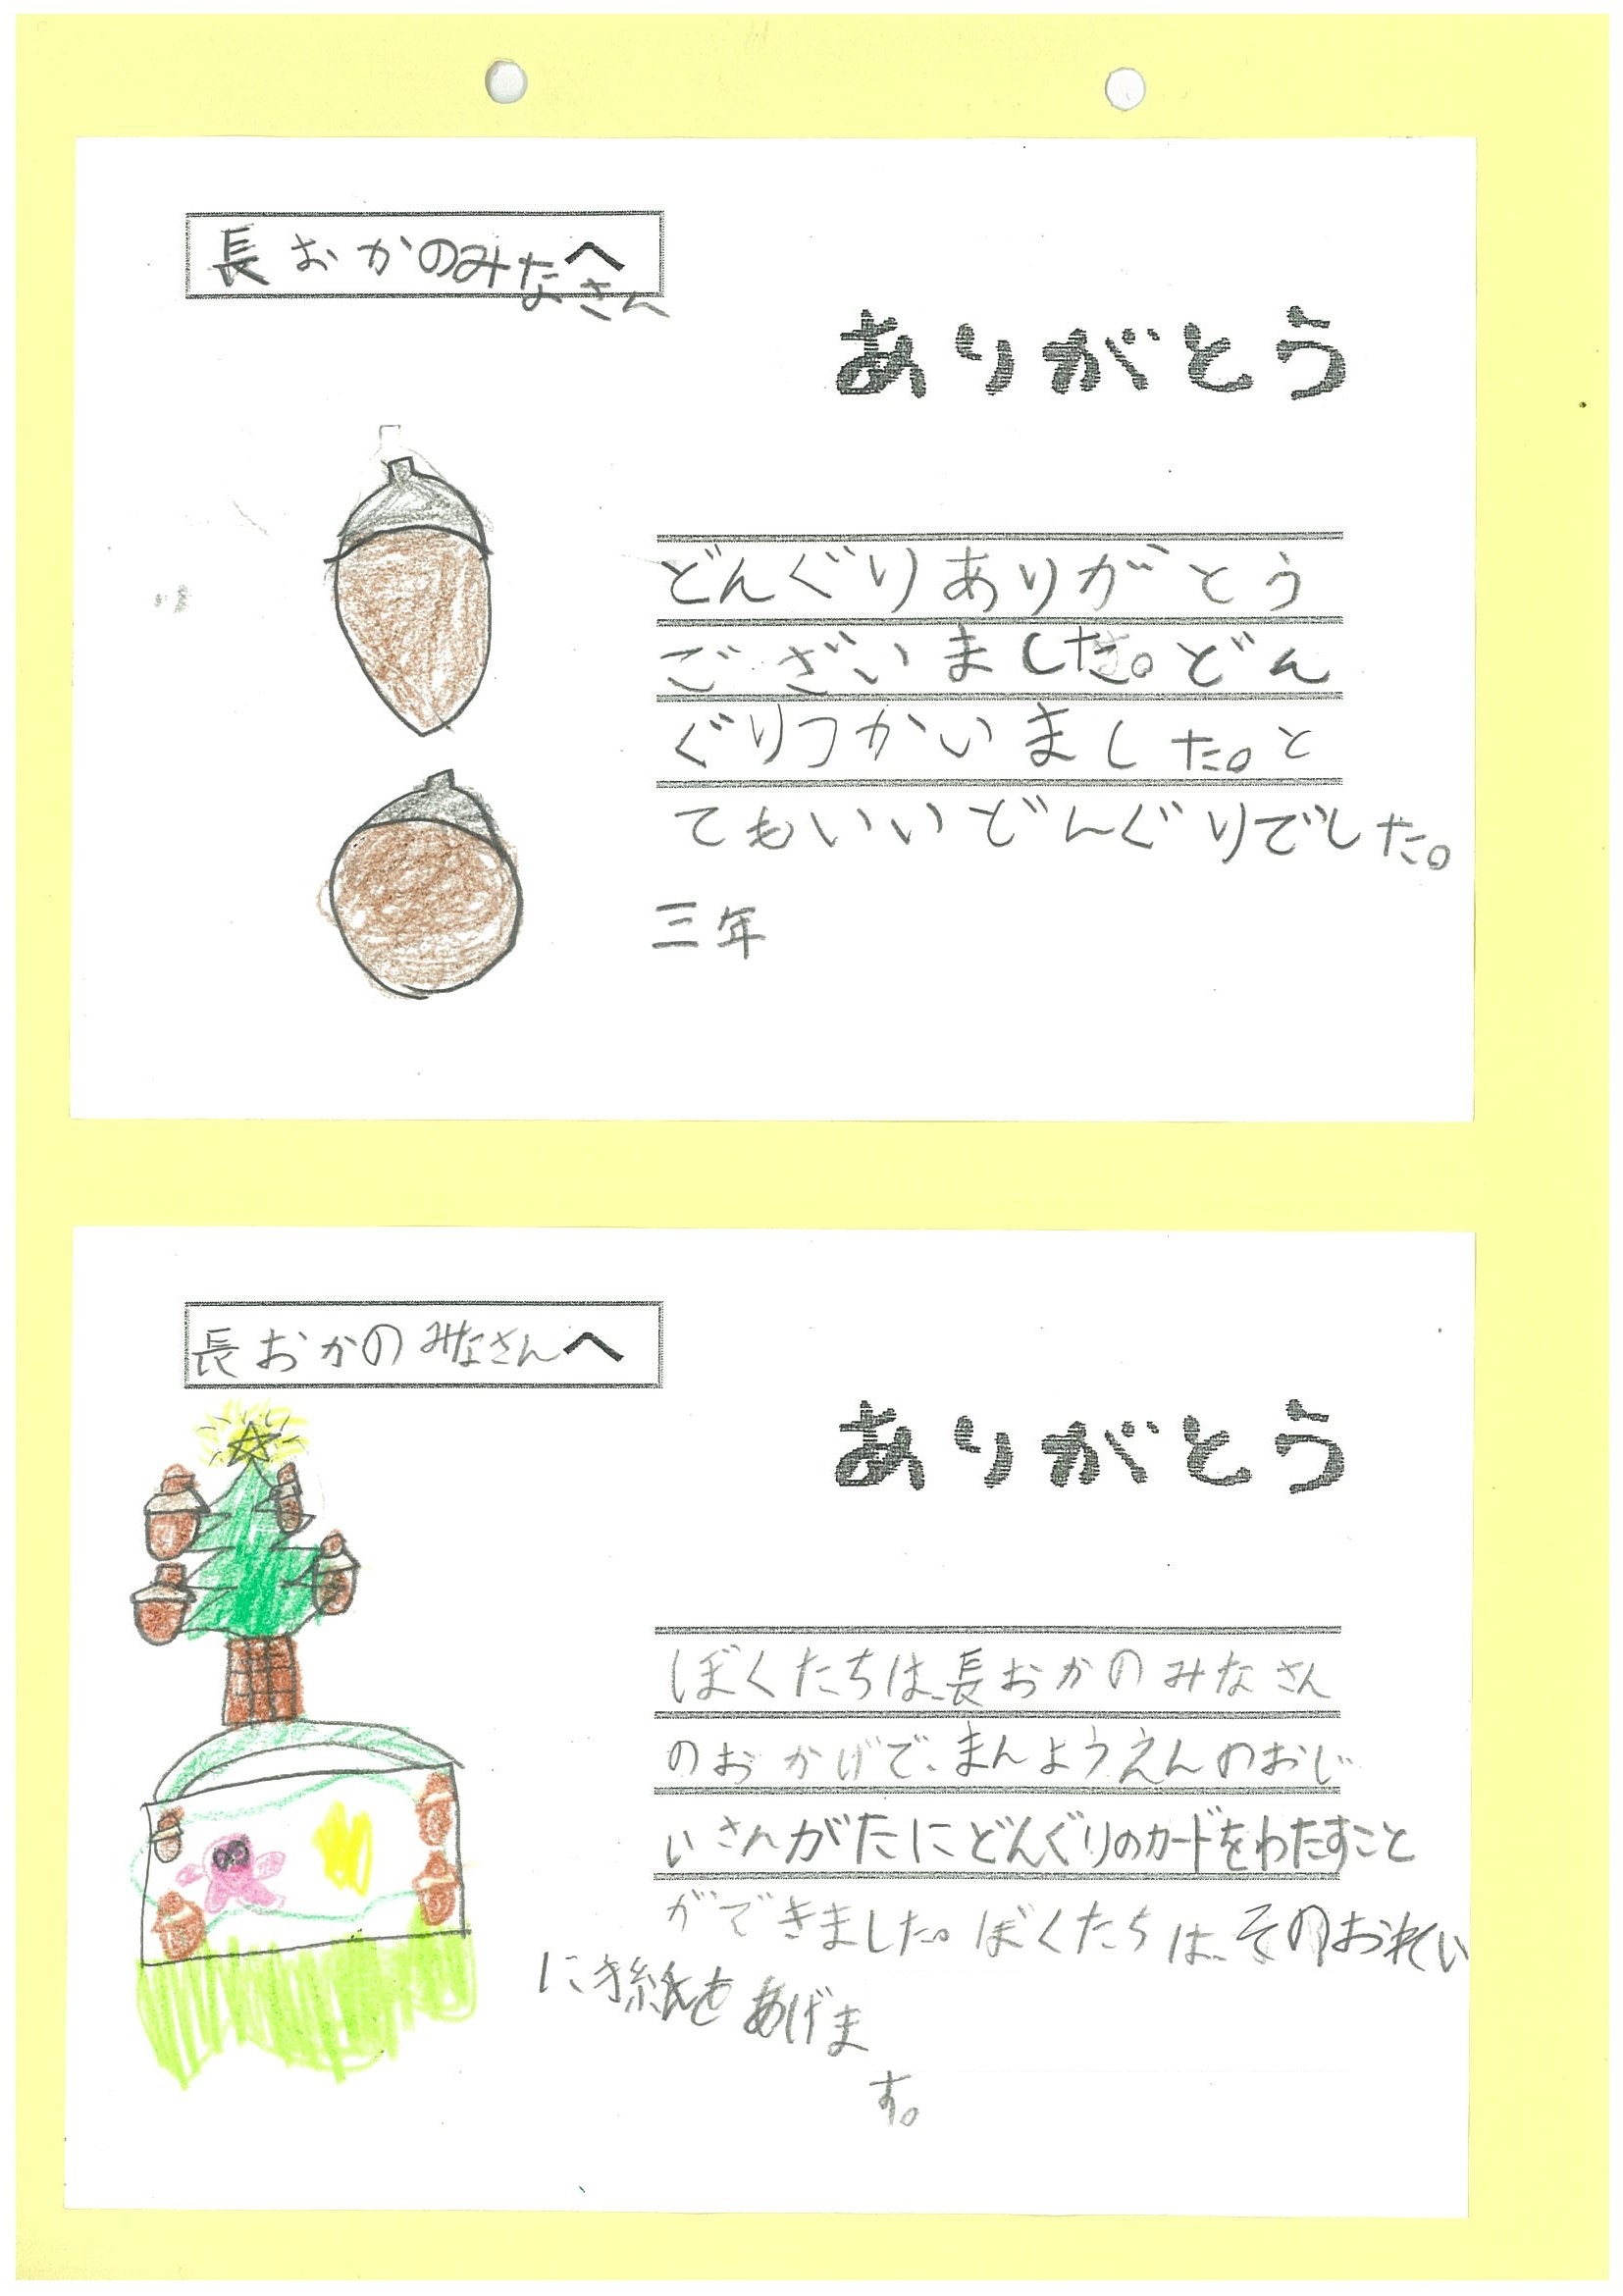 長おかのみなさんへ
ありがとう
どんぐりありがとう
ございました。どん
ぐりつかいました。と
てもいいどんぐりでした。
三年
長おかのみなさんへ
ありがとう
ぼくたちは、長おかのみなさん
のおかげで、まんようえんのおじ
いさんがたにどんぐりのカードをわたすこと
ができました。ぼくたちは、そのおれい
に手紙をあげま
す。